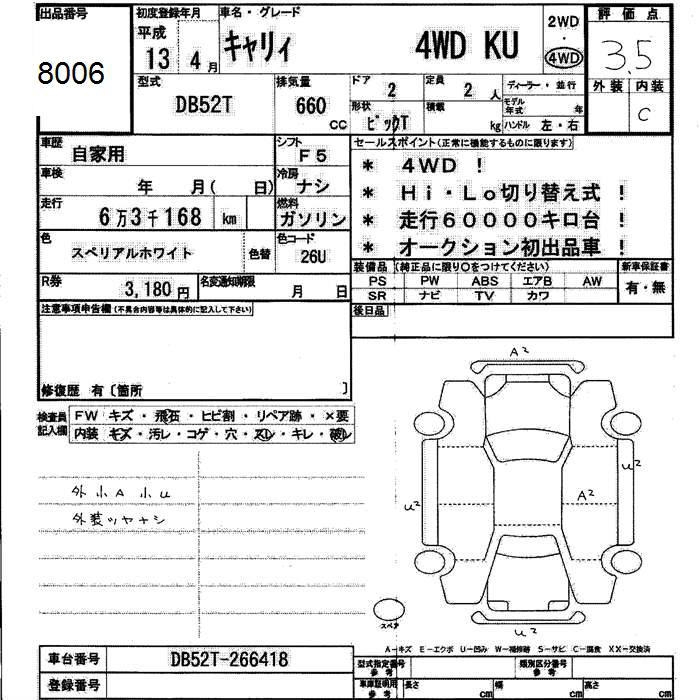 出品番号
8006
初度登録年月
平成
13 4月
車名・グレード
キャリィ 4WD KU
2WD
・
4WD
評価点
3.5
外装 内装
C
型式
DB52T
排気量
660 CC
ドア
2
定員
2 人
ディーラー・並行
形状
ピックT
積載
kg
モデル年式 年
ハンドル 左・右
車歴
自家用
シフト
F5
車検
年 月( 日)
冷房
ナシ
走行
6万3千168 km
燃料
ガソリン
色
スペリアルホワイト
色替
色コード
26U
R券
3,180円
名変通知期限
月 日
セールスポイント(正常に機能するものに限ります)
* 4WD !
* Hi・Lo切り替え式 !
* 走行60000キロ台 !
* オークション初出品車 !
装備品 (純正品に限り○をつけてください)
PS PW ABS エアB AW
SR ナビ TV カワ
新車保証書
有・無
後日品
注意事項申告欄(不具合内容等は具体的に記入して下さい)
修復歴 有〔箇所 〕
検査員記入欄
FW キズ・飛石・ヒビ割・リペア跡・×要
内装 キズ・汚レ・コゲ・穴・スレ・キレ・破レ
外小A小U
外装ツヤナシ
A2
U2
U2
A2
U2
スペア
A-キズ E-エクボ U-凹み W-補修跡 S-サビ C-腐食 XX-交換済
車台番号
DB52T-266418
登録番号
型式指定番号
参考
類別区分番号
参考
車庫証明用
参考
長さ cm
幅 cm
高さ cm